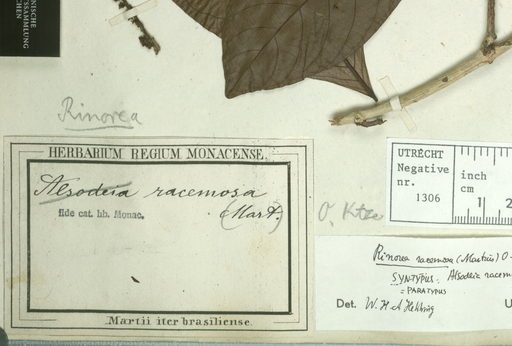 NISCHE
SSAMMLUNG
CHEN
Rinorea
HERBARIUM REGIUM MONACENSE.
Alsodeia racemosa
(Mart.)
fide cat. hb. Monac.
O. Ktze
Martii iter brasiliense.
UTRECHT
Negative
nr.
1306
inch
cm
1
2
Rinorea racemosa (Martius) O-
SYNTYPUS: Alsodeia racem
= PARATYPUS
Det. W.H.A. Hekking
U